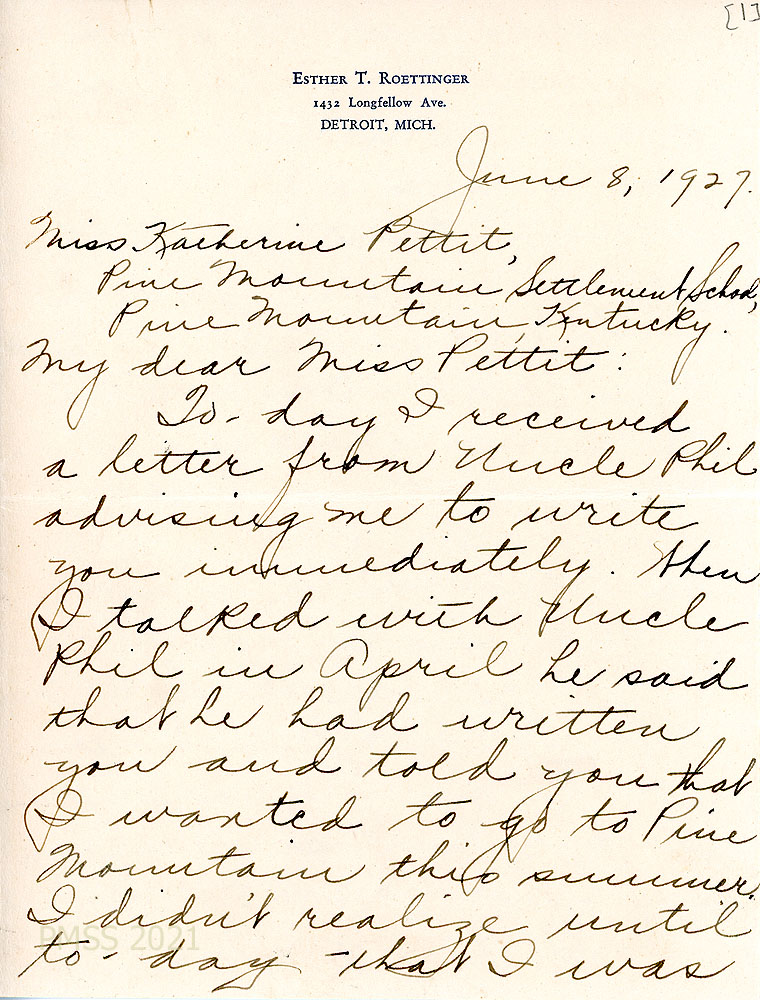 [1]
ESTHER T. ROETTINGER
1432 Longfellow Ave.
DETROIT, MICH.
June 8, 1927.
Miss Katherine Pettit,
Pine Mountain Settlement School,
Pine Mountain, Kentucky.
My dear Miss Pettit:
To-day I received
a letter from Uncle Phil
advising me to write
you immediately. When
I talked with Uncle
Phil in April he said
that he had written
you and told you that
I wanted to go to Pine
Mountain this summer.
I didn't realize until
to-day that I was
PMSS 2021